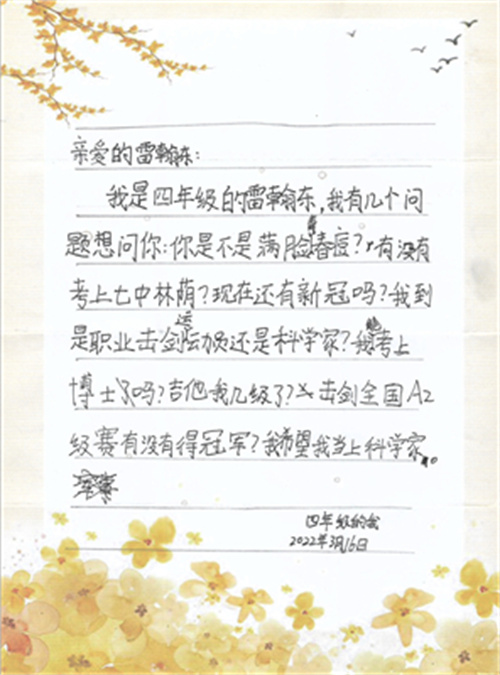 亲爱的雷翰东:
我是四年级的雷翰东,我有几个问
题想问你:你是不是满脸青春痘?有没有
考上七中林荫?现在还有新冠吗?我到
是职业击剑运动员还是科学家?我考上
博士了吗?吉他我几级了?击剑全国A2
级赛有没有得冠军?我希望我当上科学家。
四年级的我
2022年3月16日